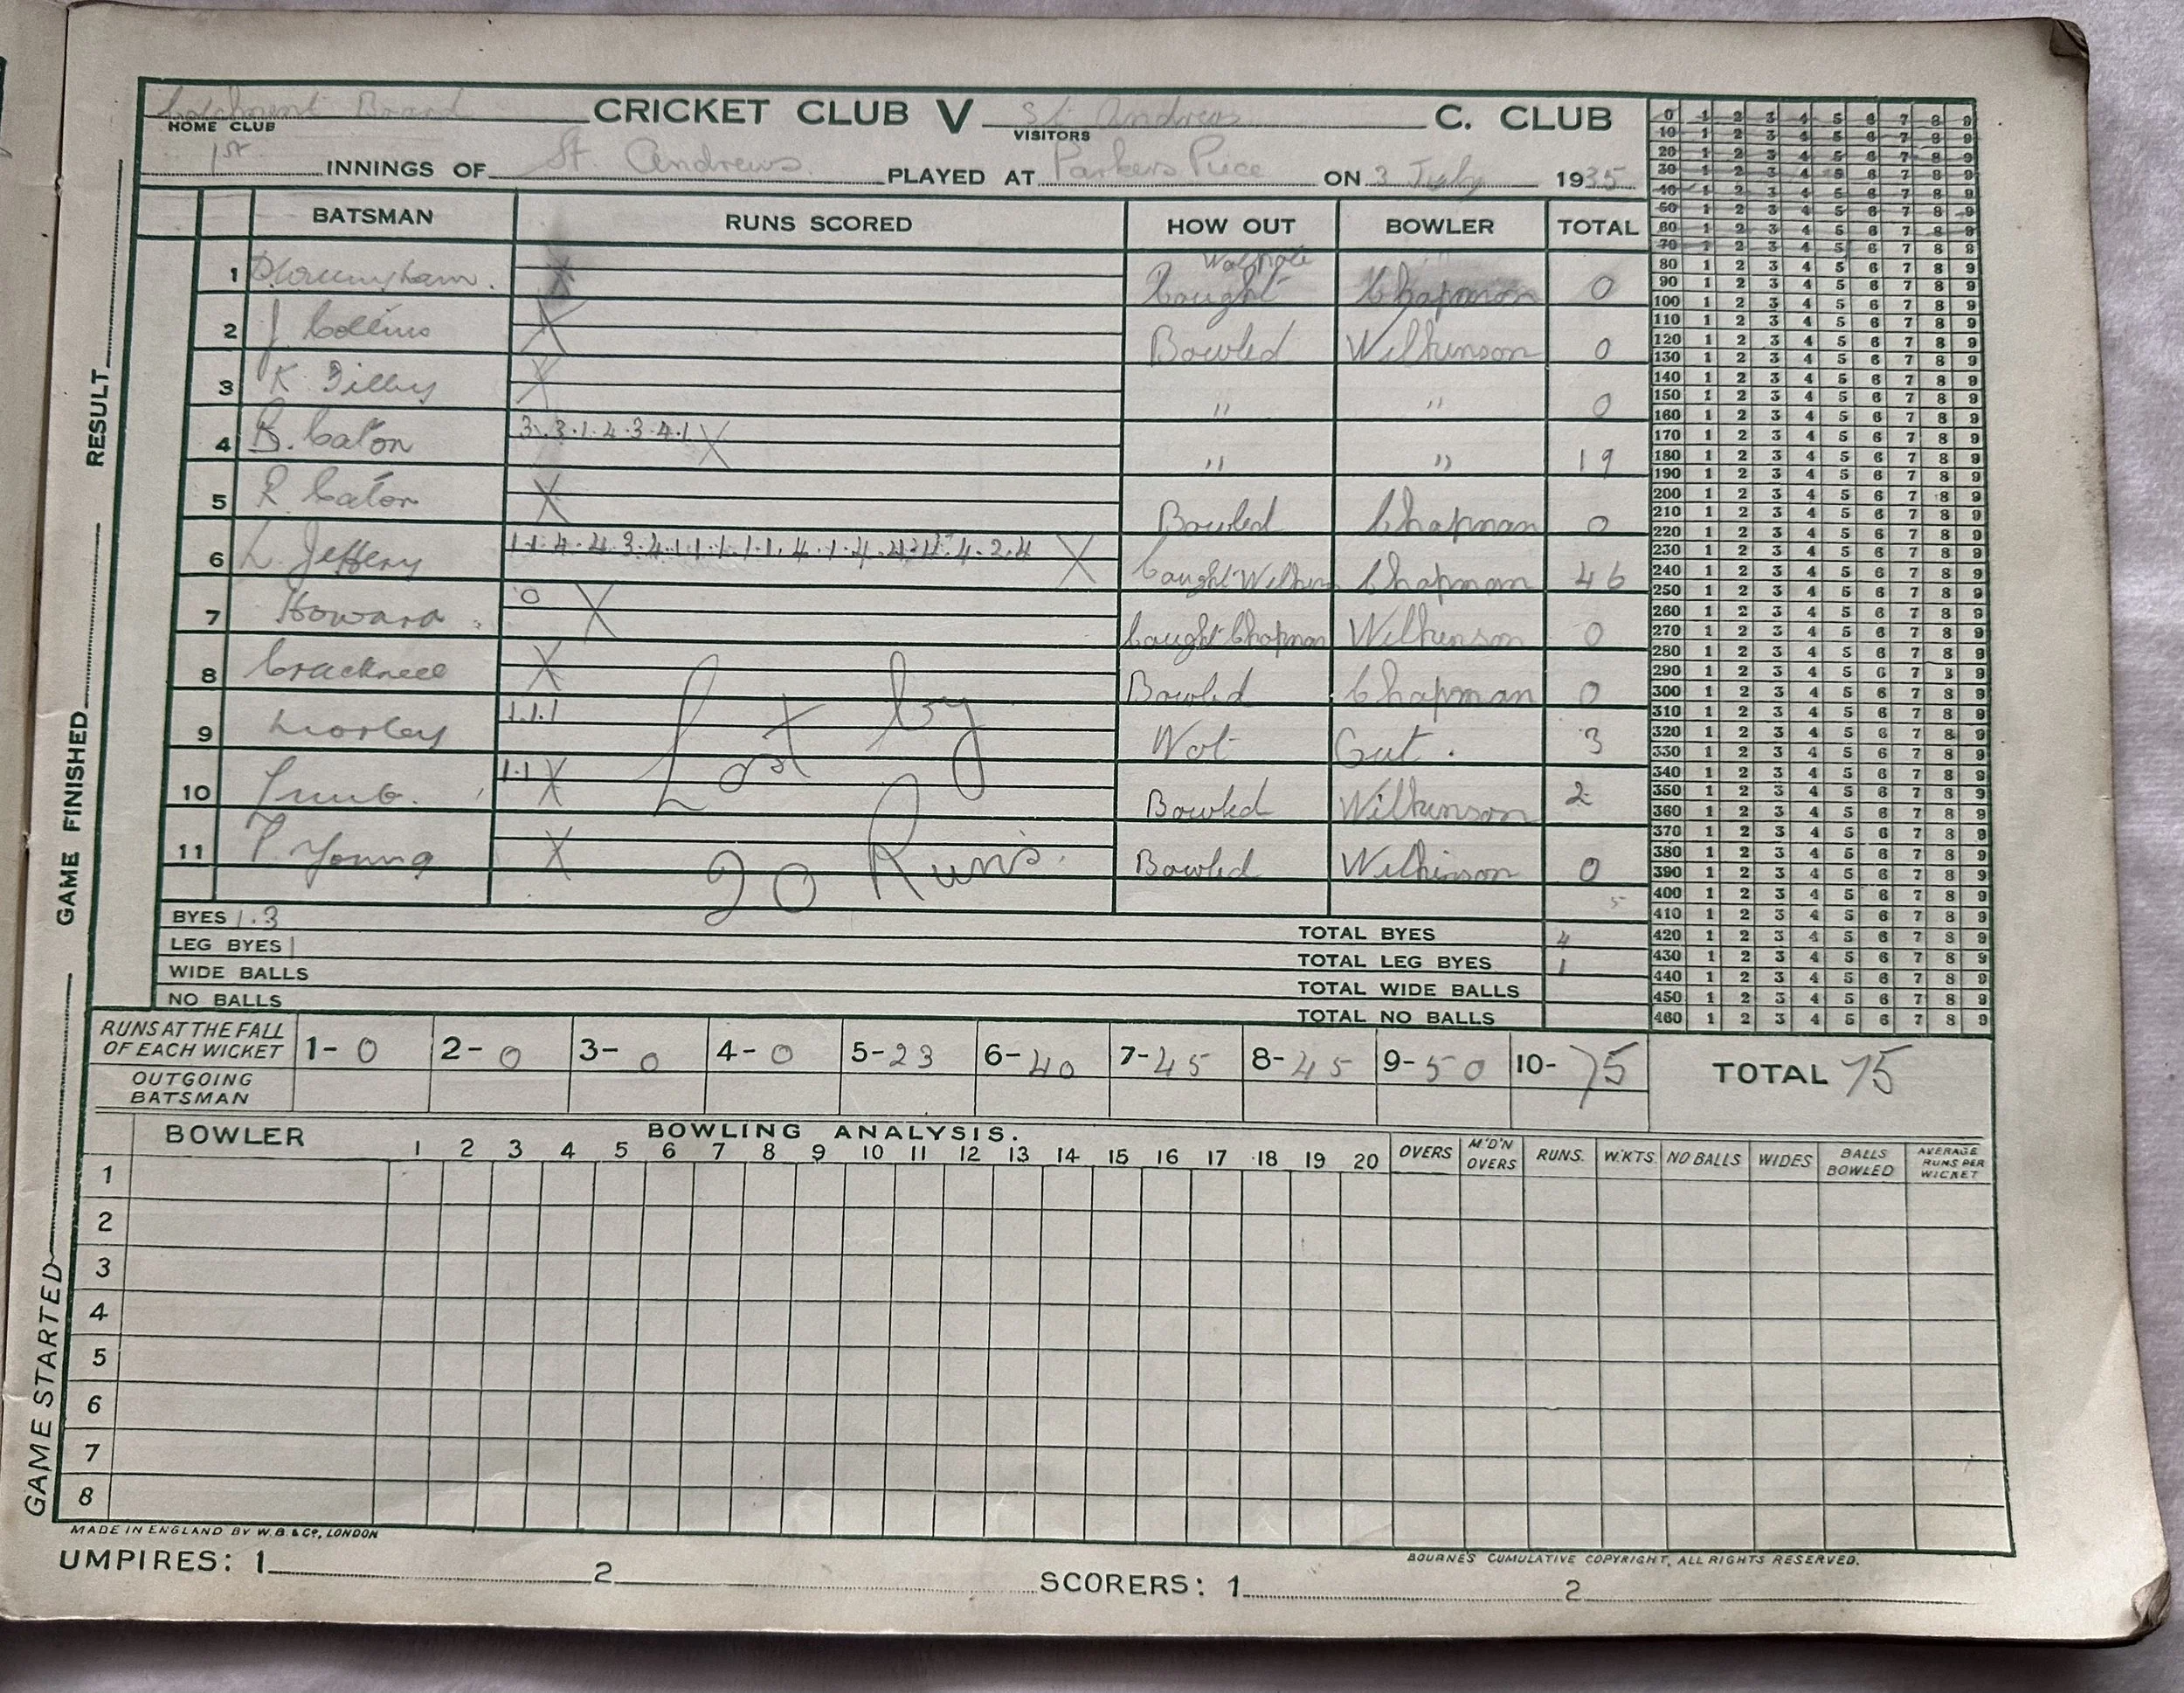 Catchment Board CRICKET CLUB V St Andrews C. CLUB
HOME CLUB VISITORS
1st INNINGS OF St. Andrews. PLAYED AT Parkers Piece ON 3 July 1935
BATSMAN RUNS SCORED HOW OUT BOWLER TOTAL
1 X Caught Walpole Chapman 0
2 J Collins X Bowled Wilkinson 0
3 K. X " " 0
4 B. Caton 3.3.1.4.3.4.1 X " " 19
5 R Caton X Bowled Chapman 0
6 L. Jeffery X Caught Wilkin Chapman 46
7 Howard 0 X Caught Chapman Wilkinson 0
8 Cracknell X Bowled Chapman 0
9 Morley 1.1.1 Not Out. 3
10 1.1 X Bowled Wilkinson 2
11 Young X Bowled Wilkinson 0
Lost by
20 Runs.
5
BYES 1.3 TOTAL BYES 4
LEG BYES 1 TOTAL LEG BYES 1
WIDE BALLS TOTAL WIDE BALLS
NO BALLS TOTAL NO BALLS
RUNS AT THE FALL
OF EACH WICKET 1- 0 2- 0 3- 0 4- 0 5- 23 6- 40 7- 45 8- 45 9- 50 10- 75 TOTAL 75
OUTGOING
BATSMAN
BOWLER BOWLING ANALYSIS.
1 2 3 4 5 6 7 8 9 10 11 12 13 14 15 16 17 18 19 20 OVERS M'D'N OVERS RUNS. W.KTS. NO BALLS WIDES BALLS BOWLED AVERAGE RUNS PER WICKET
1
2
3
4
5
6
7
8
MADE IN ENGLAND BY W.B. & Co, LONDON
BOURNE'S CUMULATIVE COPYRIGHT, ALL RIGHTS RESERVED.
UMPIRES: 1 2 SCORERS: 1 2
GAME STARTED GAME FINISHED RESULT
0 1 2 3 4 5 6 7 8 9
10 1 2 3 4 5 6 7 8 9
20 1 2 3 4 5 6 7 8 9
30 1 2 3 4 5 6 7 8 9
40 1 2 3 4 5 6 7 8 9
50 1 2 3 4 5 6 7 8 9
60 1 2 3 4 5 6 7 8 9
70 1 2 3 4 5 6 7 8 9
80 1 2 3 4 5 6 7 8 9
90 1 2 3 4 5 6 7 8 9
100 1 2 3 4 5 6 7 8 9
110 1 2 3 4 5 6 7 8 9
120 1 2 3 4 5 6 7 8 9
130 1 2 3 4 5 6 7 8 9
140 1 2 3 4 5 6 7 8 9
150 1 2 3 4 5 6 7 8 9
160 1 2 3 4 5 6 7 8 9
170 1 2 3 4 5 6 7 8 9
180 1 2 3 4 5 6 7 8 9
190 1 2 3 4 5 6 7 8 9
200 1 2 3 4 5 6 7 8 9
210 1 2 3 4 5 6 7 8 9
220 1 2 3 4 5 6 7 8 9
230 1 2 3 4 5 6 7 8 9
240 1 2 3 4 5 6 7 8 9
250 1 2 3 4 5 6 7 8 9
260 1 2 3 4 5 6 7 8 9
270 1 2 3 4 5 6 7 8 9
280 1 2 3 4 5 6 7 8 9
290 1 2 3 4 5 6 7 8 9
300 1 2 3 4 5 6 7 8 9
310 1 2 3 4 5 6 7 8 9
320 1 2 3 4 5 6 7 8 9
330 1 2 3 4 5 6 7 8 9
340 1 2 3 4 5 6 7 8 9
350 1 2 3 4 5 6 7 8 9
360 1 2 3 4 5 6 7 8 9
370 1 2 3 4 5 6 7 8 9
380 1 2 3 4 5 6 7 8 9
390 1 2 3 4 5 6 7 8 9
400 1 2 3 4 5 6 7 8 9
410 1 2 3 4 5 6 7 8 9
420 1 2 3 4 5 6 7 8 9
430 1 2 3 4 5 6 7 8 9
440 1 2 3 4 5 6 7 8 9
450 1 2 3 4 5 6 7 8 9
460 1 2 3 4 5 6 7 8 9